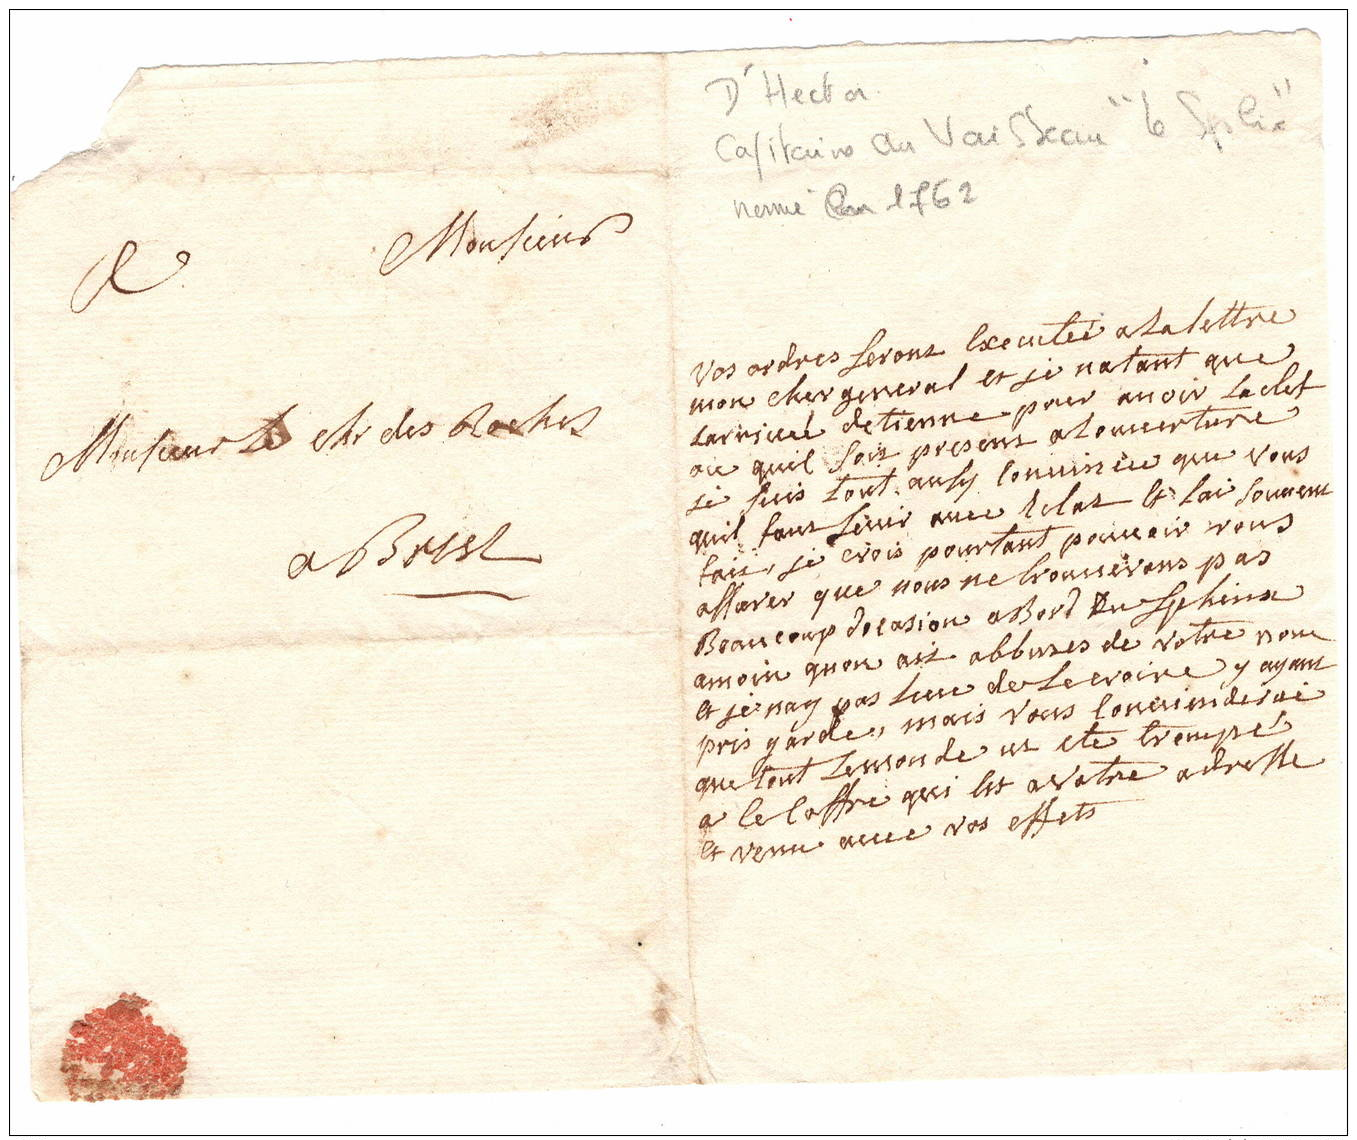 A
Monsieur
Monsieur le chr des Roches
a Brest
D'Hector
Capitaine du Vaisseau "le Sphix"
nommé en 1762
vos ordres seront executeé a la lettre
mon cher general et je natant que
larriveé detienne pour avoir la clef
ou quil soit present a louverture
je suis tout ausy convinceu que vous
quil faut sevir avec eclat et lai souvent
fait, je crois pourtant pouvoir vous
assurer que nous ne trouverons pas
Beaucoup docasion a Bord du Sphinx
amoin quon ait abbuzes de votre nom
et je nay pas lieu de le croire y ayant
pris garde, mais vous convienderai
que tout lemonde ut ete trempé
a le coffre qui est a votre adresse
et venu avec vos effets